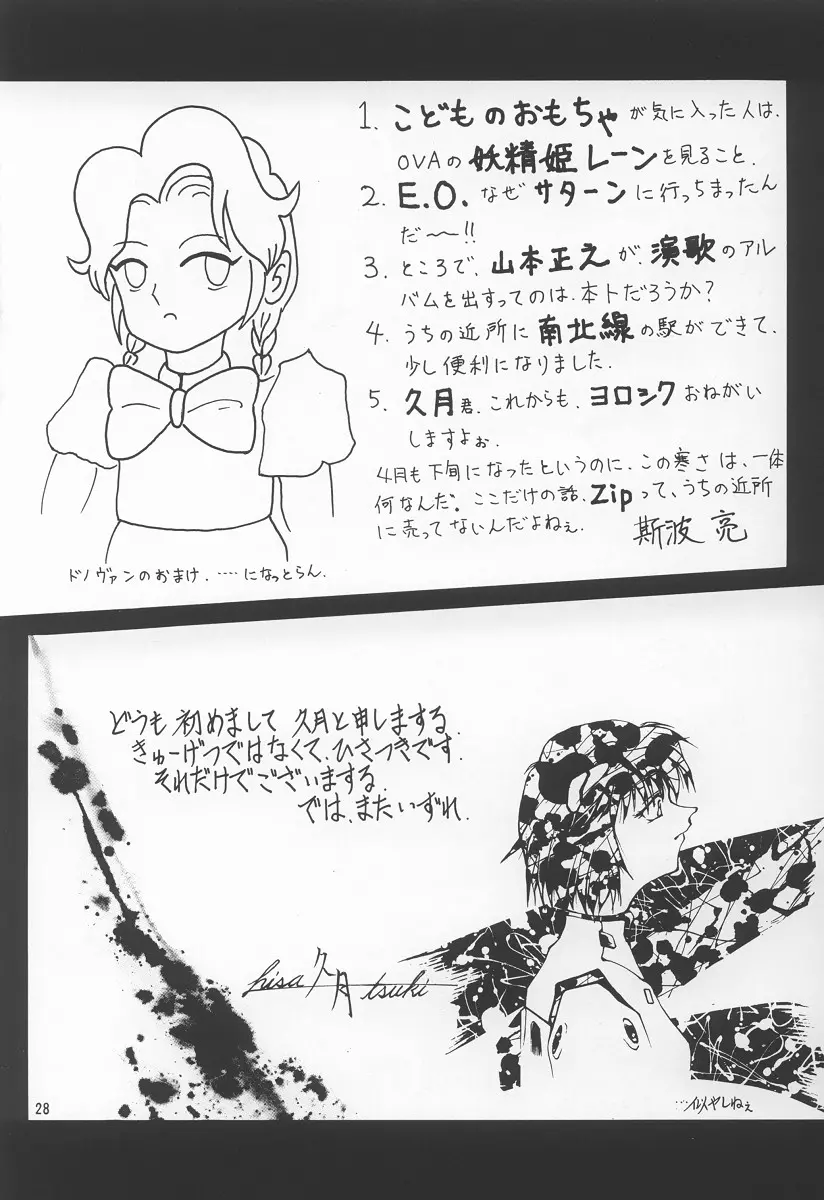 1. こどものおもちゃが気に入った人は、
OVAの妖精姫レーンを見ること.
2. E.O. なぜサターンに行っちまったん
だ〜〜!!
3. ところで、山本正之が、演歌のアル
バムを出すってのは、本トだろうか?
4. うちの近所に南北線の駅ができて、
少し便利になりました.
5. 久月君、これからも、ヨロシクおねがい
しますよぉ.
4月も下旬になったというのに、この寒さは、一体
何なんだ。ここだけの話、Zipって、うちの近所
に売ってないんだよねぇ.
斯波 亮
ドノヴァンのおまけ. ……になっとらん.
どうも初めまして 久月と申しまする.
きゅーげつではなくて、ひさつきです.
それだけでございまする.
では、またいずれ.
hisa久月tsuki
…似やしねぇ
28